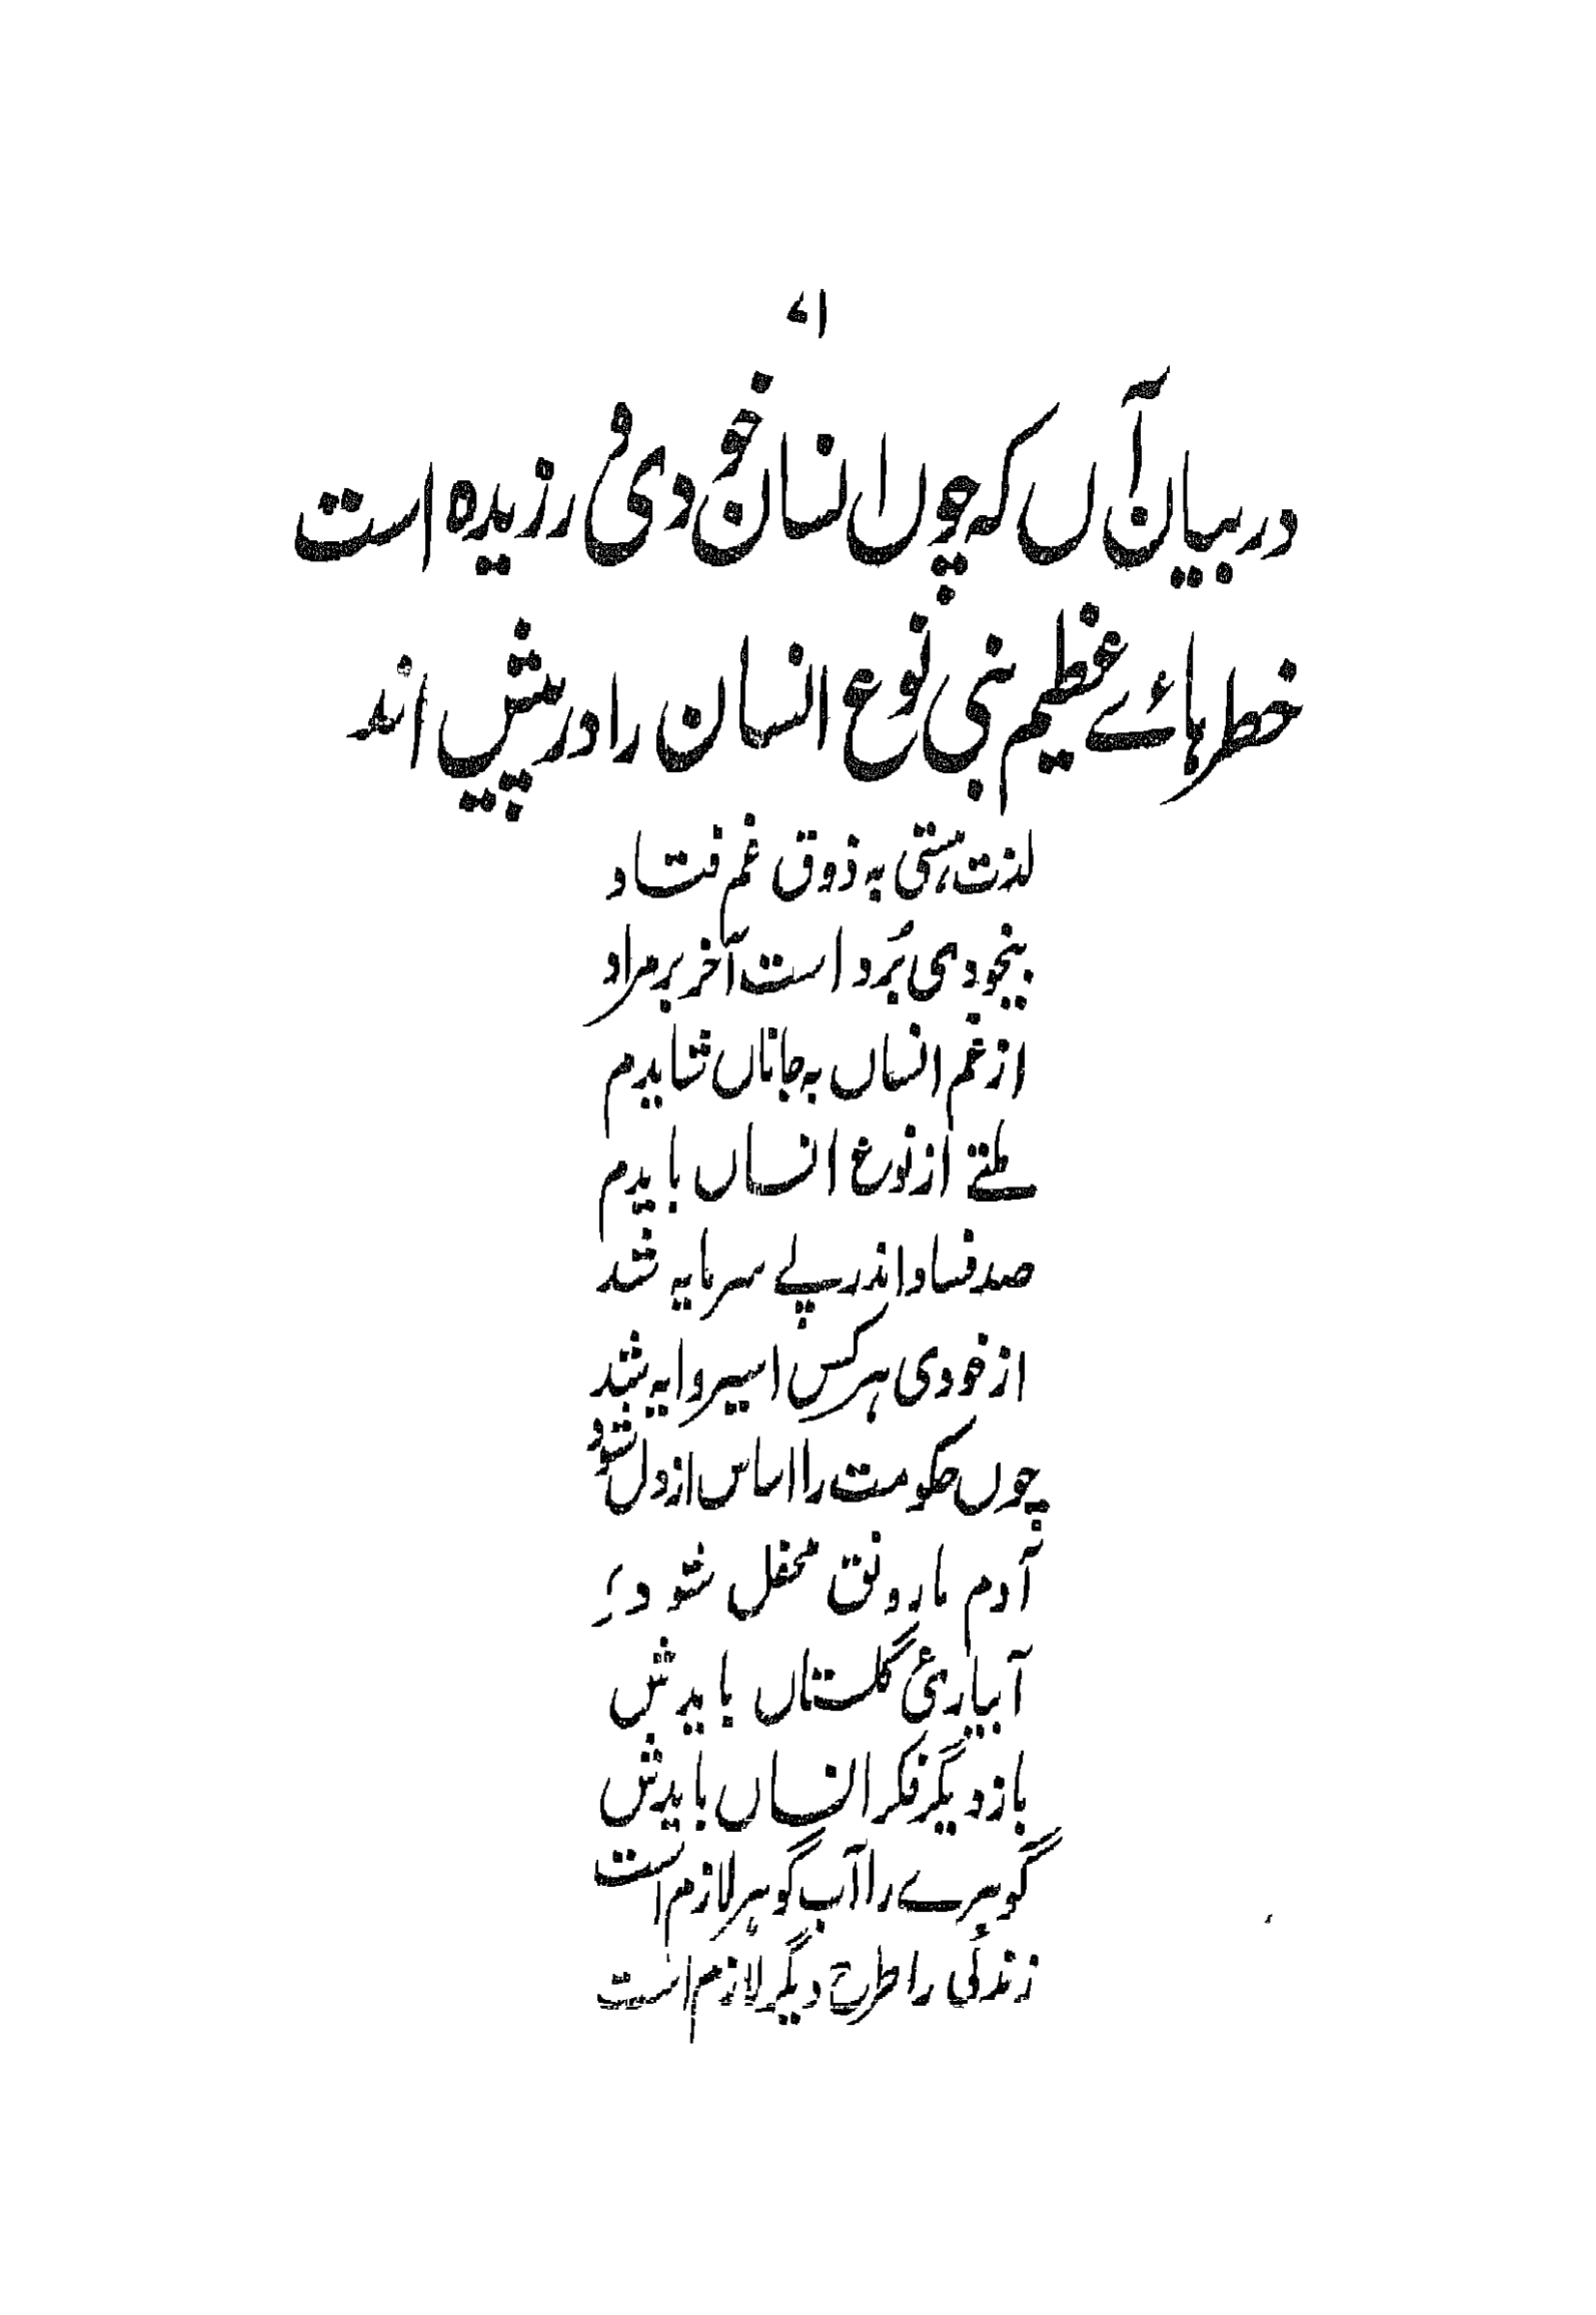 ۷۱
در بیان آں کہ چوں انسان خودی ورزیدہ است
خطرہائے عظیم بنی نوع انسان را درپیش اند
لذت ہستی بہ ذوق غم فتاد
بیخودی بُرد است آخر بر مراد
از غم انساں بہ جاناں شایدم
ملتے از نوع انساں بایدم
صد فساد اندر پے سرمایہ شد
از خودی ہر کس اسیر وایہ شد
چوں حکومت را اساس از دل شود
آدم ما رونق محفل شود
آبیاریٔ گلستاں بایدش
باز دیگر فکر انساں بایدش
گوہرے را آب گوہر لازم است
زندگی را طرح دیگر لازم است